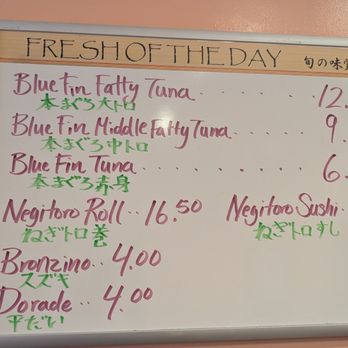 FRESH OF THE DAY 旬の味
Blue Fin Fatty Tuna ....... 12.
本まぐろ大トロ
Blue Fin Middle Fatty Tuna ..... 9.
本まぐろ中トロ
Blue Fin Tuna ........ 6.
本まぐろ赤身
Negitoro Roll .. 16.50 Negitoro Sushi .
ねぎトロ巻 ねぎトロすし
Bronzino .. 4.00
スズキ
Dorade .. 4.00
平だい